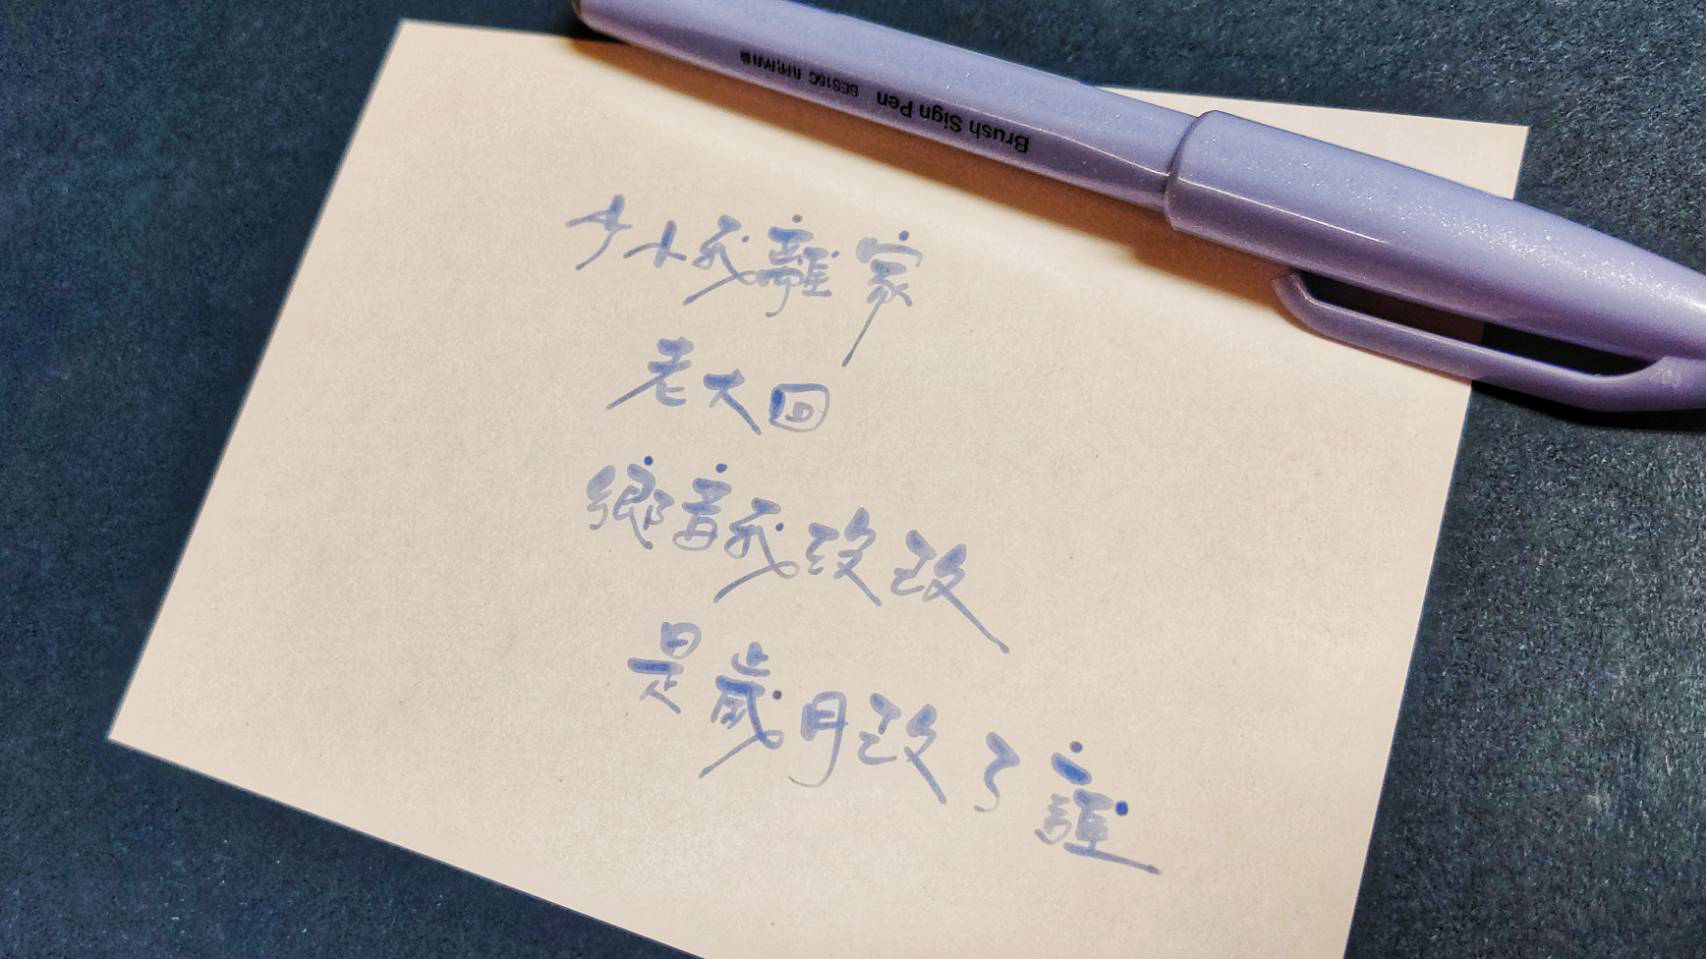 Brush Sign Pen SES15C
少小我離家
老大回
鄉音我沒改
是歲月改了誰